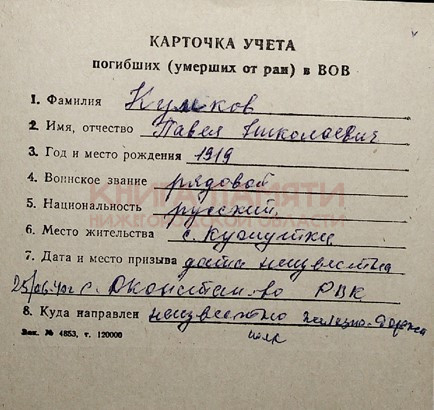 КАРТОЧКА УЧЕТА
погибших (умерших от ран) в ВОВ
1. Фамилия Кулюков
2. Имя, отчество Павел Николаевич
3. Год и место рождения 1919
4. Воинское звание рядовой
КНИГА ПАМЯТИ
5. Национальность русский
НИЖЕГОРОДСКОЙ ОБЛАСТИ
6. Место жительства с.
7. Дата и место призыва дата неизвестна
РВК
8. Куда направлен неизвестно
Зак. № 4853, т. 120000